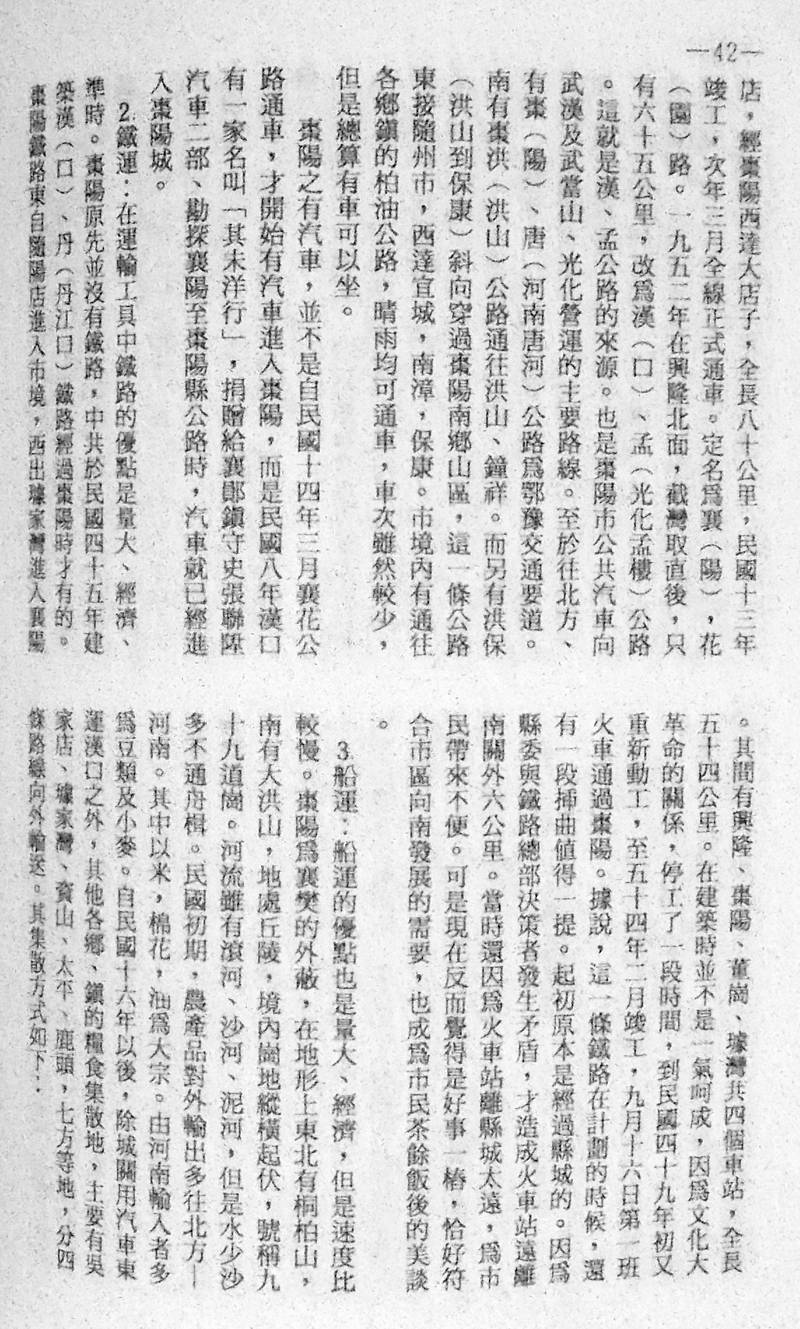 —42—
店，經棗陽西達大店子，全長八十公里，民國十三年
竣工，次年三月全線正式通車。定名爲襄（陽），花
（園）路。一九五二年在興隆北面，截灣取直後，只
有六十五公里，改爲漢（口）、孟（光化孟樓）公路
。這就是漢、孟公路的來源。也是棗陽市公共汽車向
武漢及武當山、光化營運的主要路線。至於往北方、
有棗（陽）、唐（河南唐河）公路爲鄂豫交通要道。
南有棗洪（洪山）公路通往洪山、鐘祥。而另有洪保
（洪山到保康）斜向穿過棗陽南鄉山區，這一條公路
東接隨州市，西達宜城，南漳，保康。市境內有通往
各鄉鎮的柏油公路，晴雨均可通車，車次雖然較少，
但是總算有車可以坐。
棗陽之有汽車，並不是自民國十四年三月襄花公
路通車，才開始有汽車進入棗陽，而是民國八年漢口
有一家名叫「其未洋行」，捐贈給襄鄖鎮守史張聯陞
汽車二部、勘探襄陽至棗陽縣公路時，汽車就已經進
入棗陽城。
2.鐵運：在運輸工具中鐵路的優點是量大、經濟、
準時。棗陽原先並沒有鐵路，中共於民國四十五年建
築漢（口）、丹（丹江口）鐵路經過棗陽時才有的。
棗陽鐵路東自隨陽店進入市境，西出璩家灣進入襄陽
。其間有興隆、棗陽、董崗、璩灣共四個車站，全長
五十四公里。在建築時並不是一氣呵成，因爲文化大
革命的關係，停工了一段時間，到民國四十九年初又
重新動工，至五十四年二月竣工，九月十六日第一班
火車通過棗陽。據說，這一條鐵路在計劃的時候，還
有一段揷曲値得一提。起初原本是經過縣城的。因爲
縣委與鐵路總部決策者發生矛盾，才造成火車站遠離
南關外六公里。當時還因爲火車站離縣城太遠，爲市
民帶來不便。可是現在反而覺得是好事一樁，恰好符
合市區向南發展的需要，也成爲市民茶餘飯後的美談
。
3.船運：船運的優點也是量大、經濟，但是速度比
較慢。棗陽爲襄樊的外蔽，在地形上東北有桐柏山，
南有大洪山，地處丘陵，境內崗地縱橫起伏，號稱九
十九道崗。河流雖有滾河、沙河、泥河，但是水少沙
多不通舟楫。民國初期，農產品對外輸出多往北方—
河南。其中以米，棉花，油爲大宗。由河南輸入者多
爲豆類及小麥。自民國十六年以後，除城關用汽車東
運漢口之外，其他各鄉、鎮的糧食集散地，主要有吳
家店、璩家灣、資山、太平、鹿頭，七方等地，分四
條路線向外輸送。其集散方式如下：